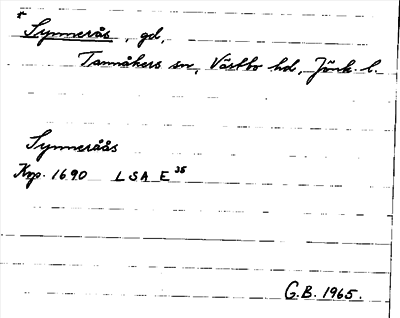 * Synnerås, gd,
Tannåkers sn, Västbo hd, Jönk. l.
Synneråås
Kop. 1690 LSA E 35
G.B. 1965.